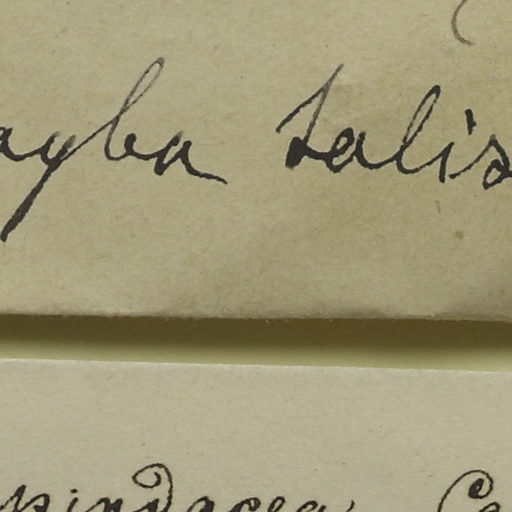 ayba talis
pindacea Ca